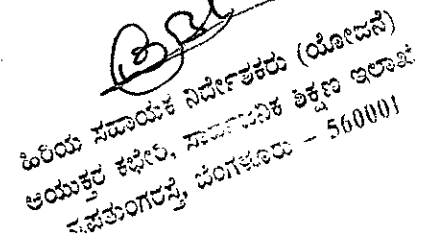 ಹಿರಿಯ ಸಹಾಯಕ ನಿರ್ದೇಶಕರು (ಯೋಜನೆ)
ಆಯುಕ್ತರ ಕಛೇರಿ, ಸಾರ್ವಜನಿಕ ಶಿಕ್ಷಣ ಇಲಾಖೆ
ನೃಪತುಂಗರಸ್ತೆ, ಬೆಂಗಳೂರು – 560001